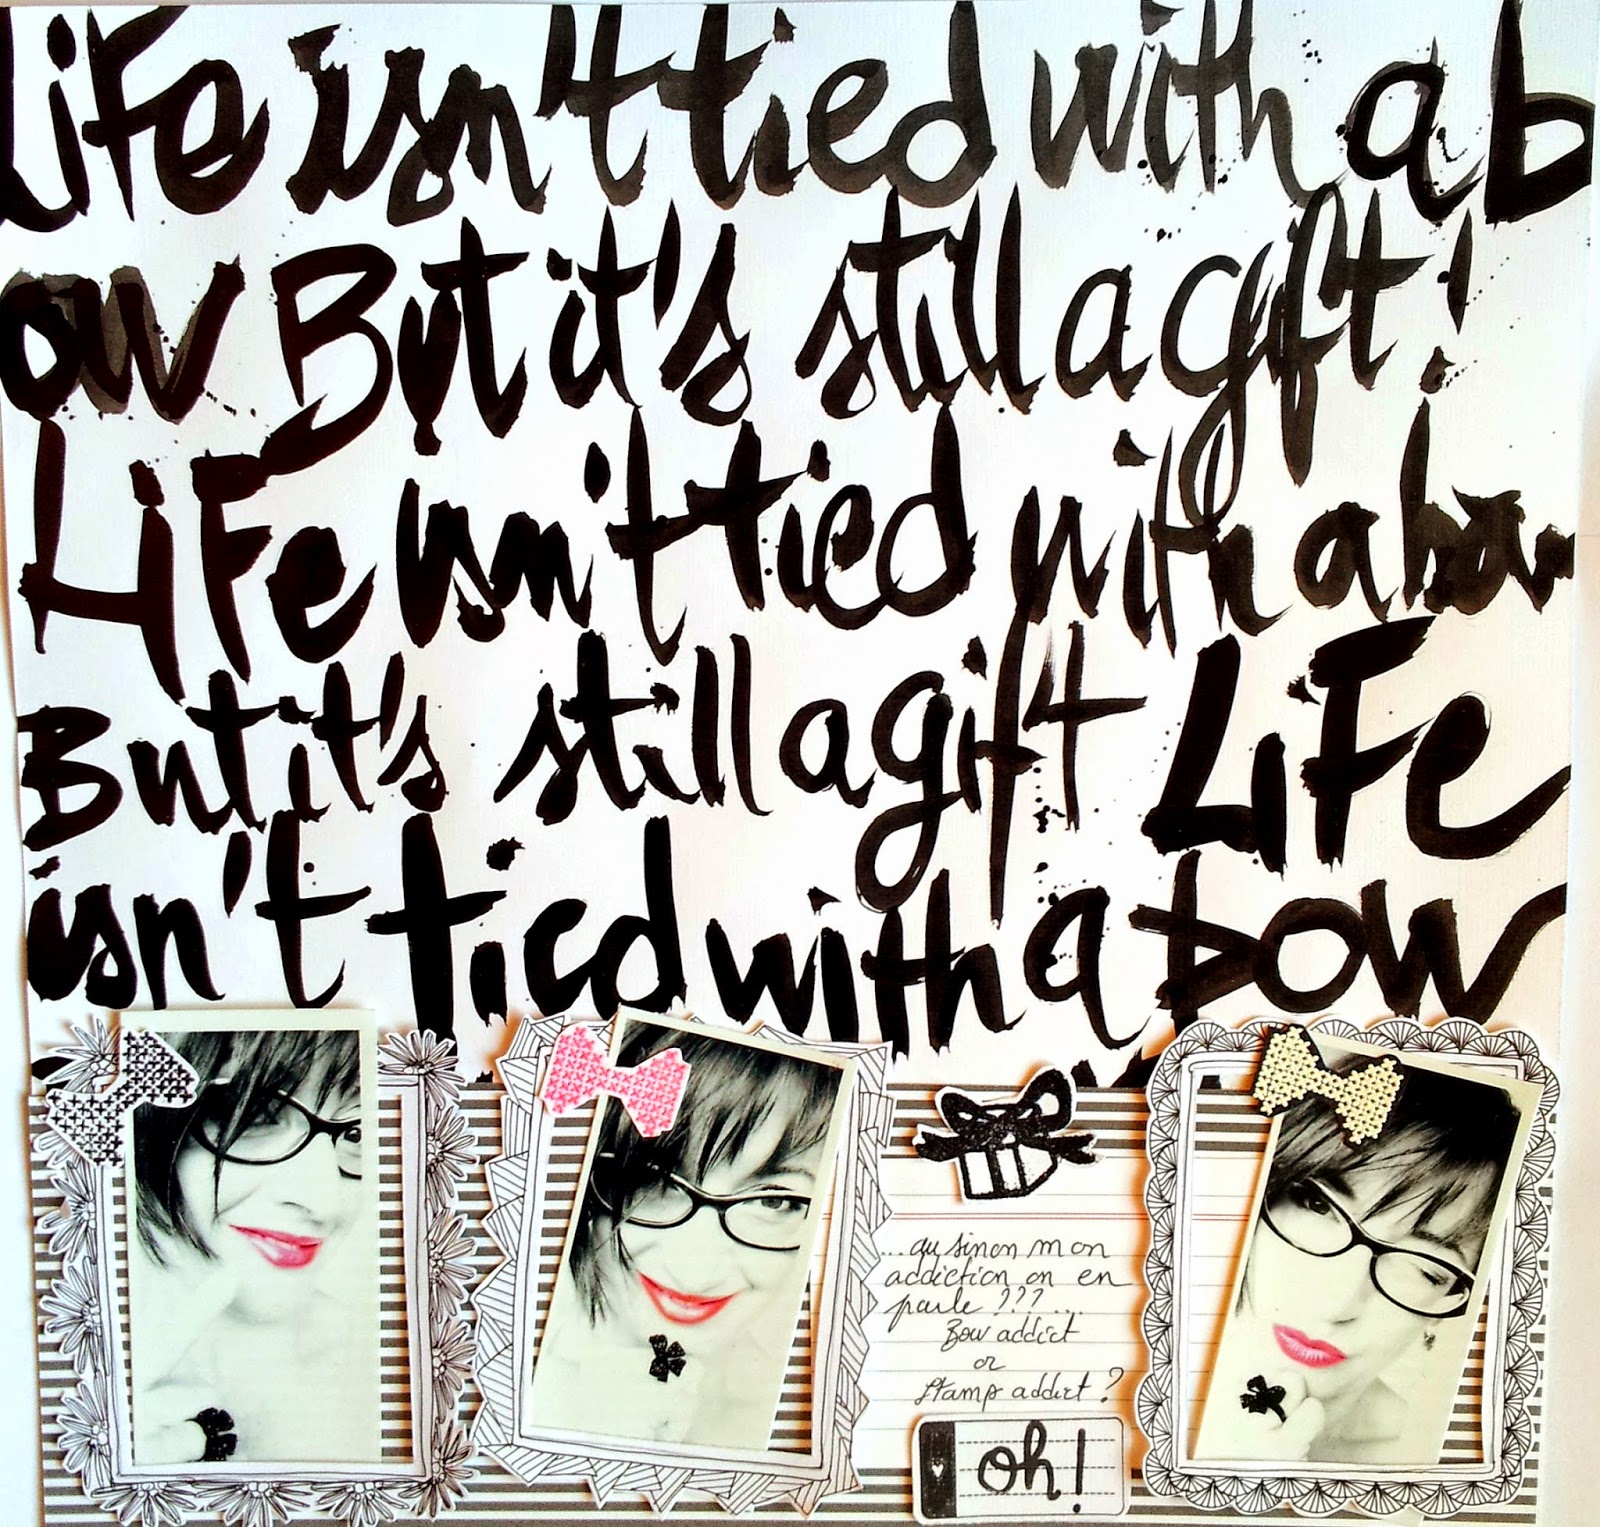 Life isn't tied with a b
ow But it's still a gift!
Life isn't tied with a bow
But it's still a gift Life
isn't tied with a bow
...ou sinon mon
addiction on en
parle ??? ....
Bow addict
or
Stamp addict ?
oh!